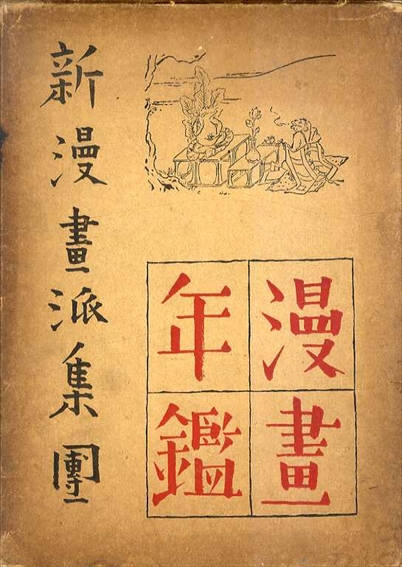 漫畫
年鑑
新漫畫派集團